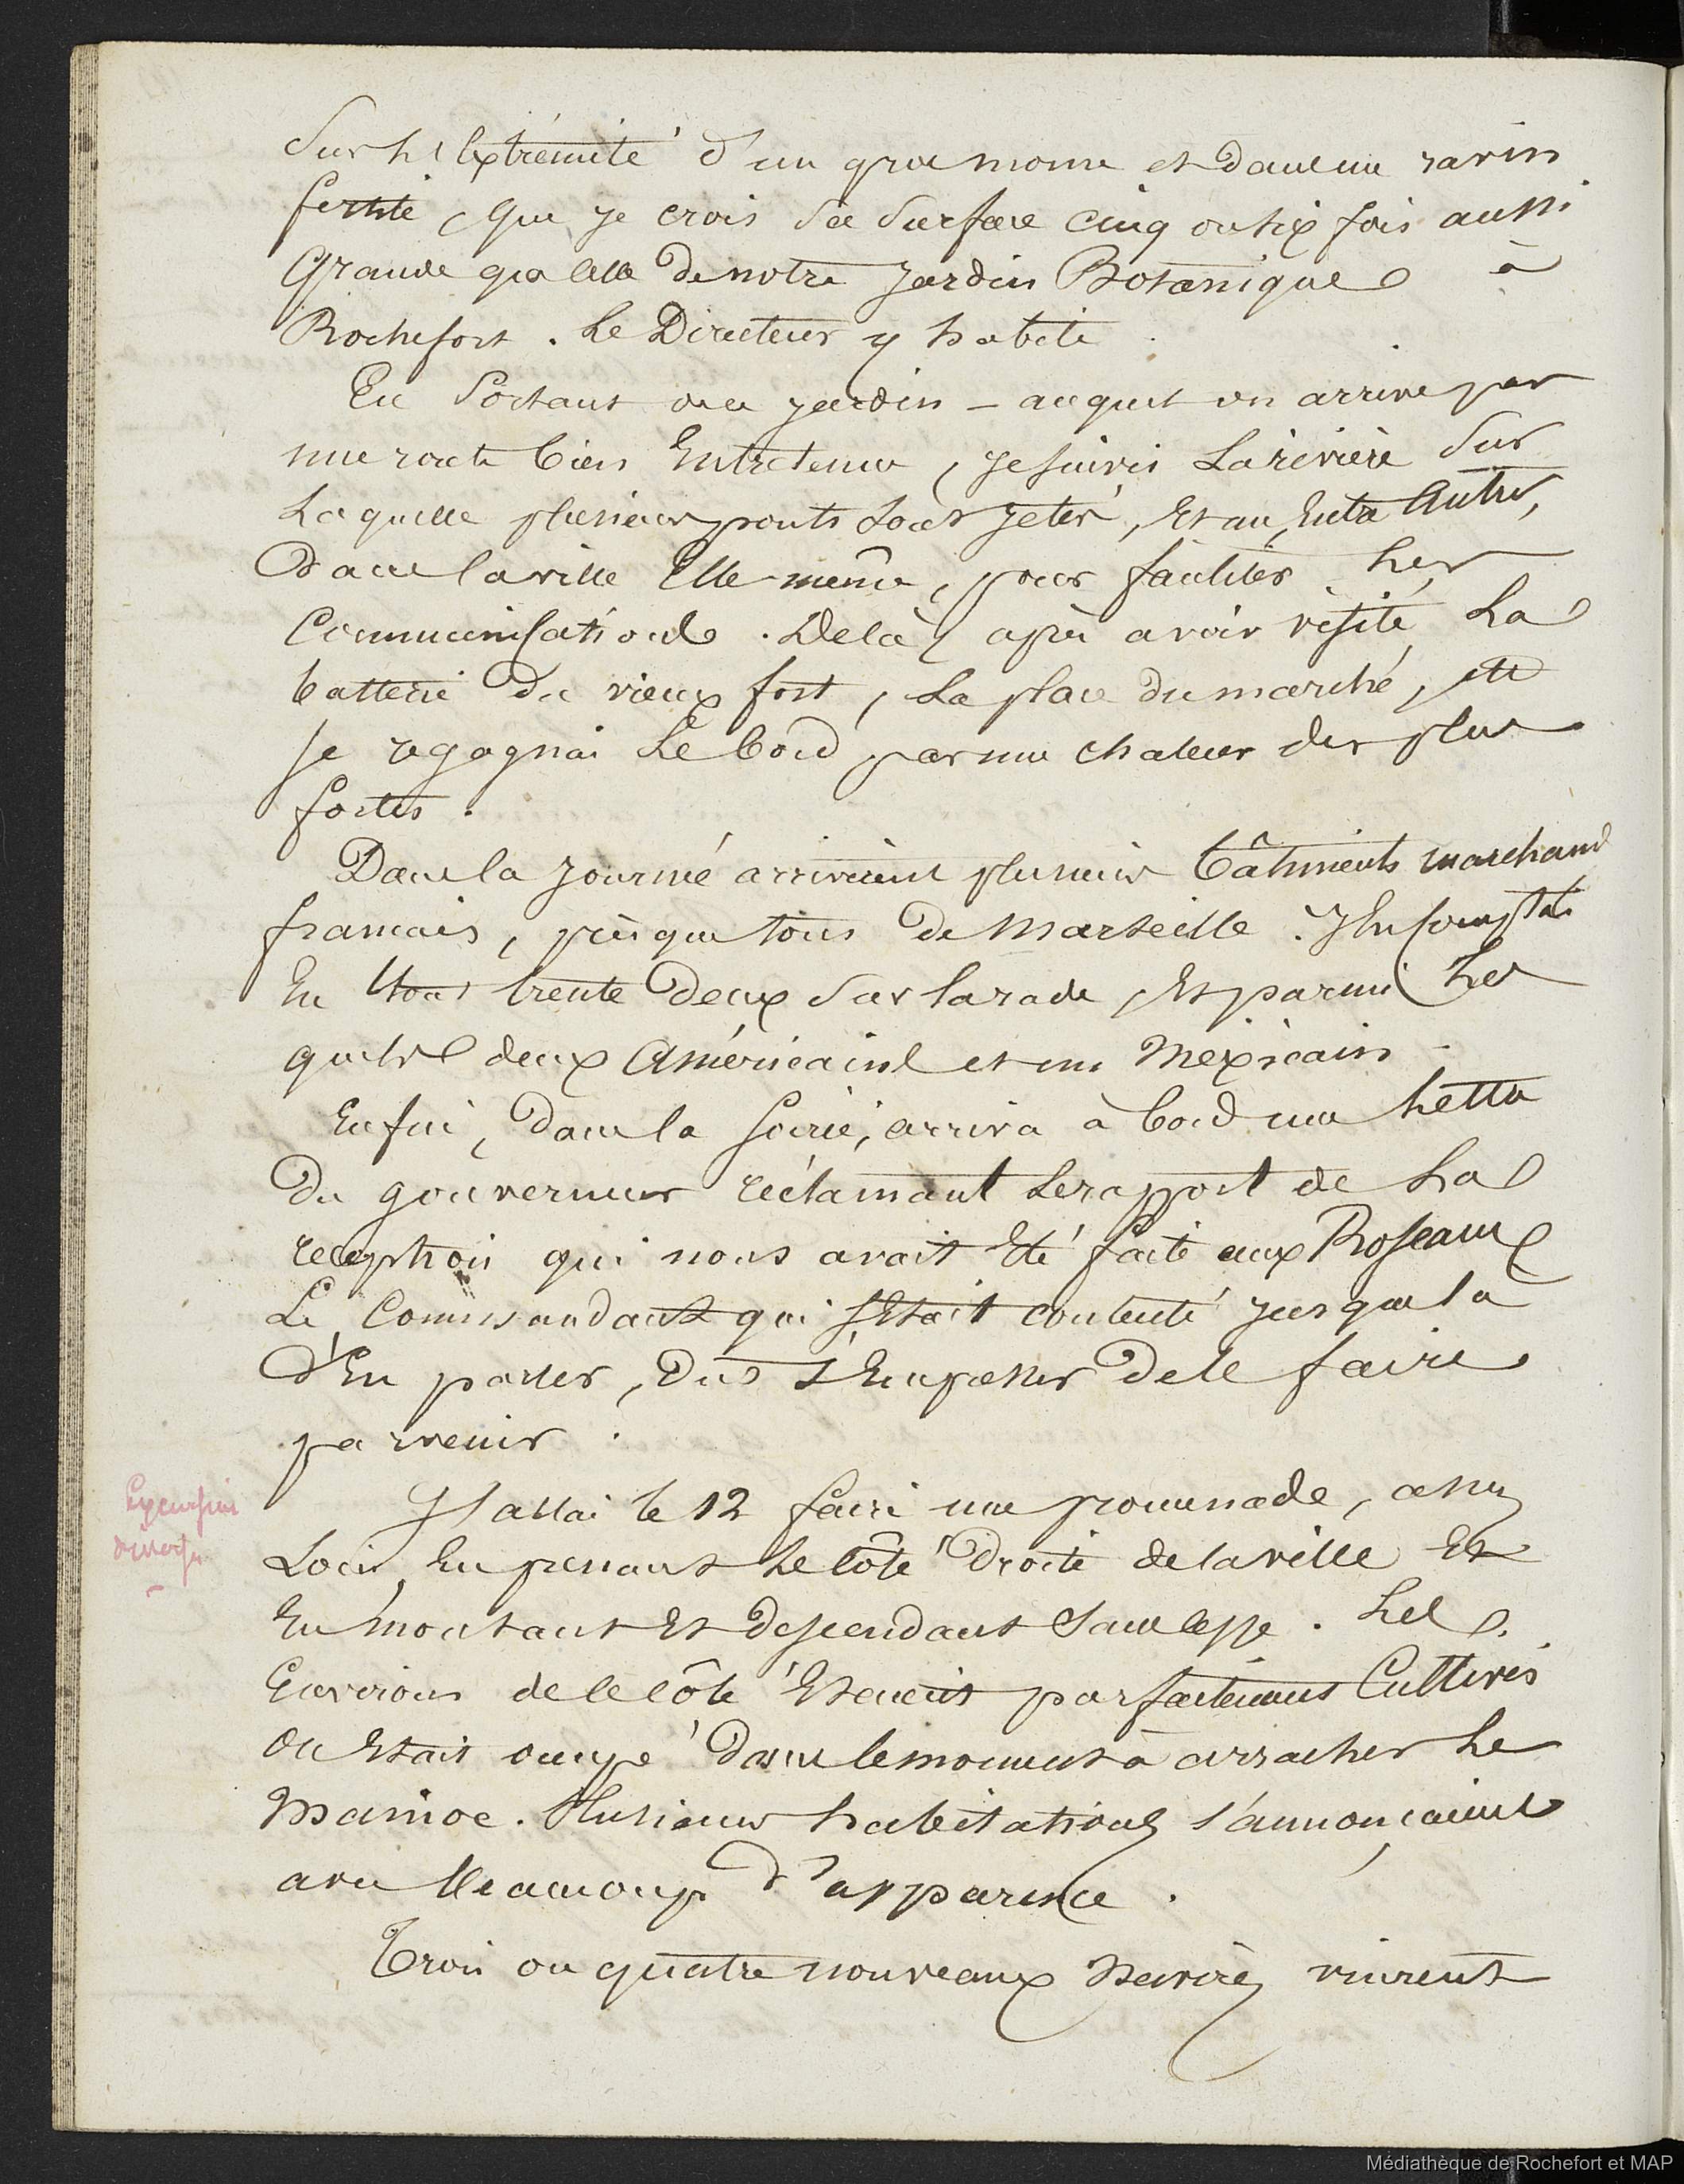 Sur l'Extrémité d'un gros morne et dans un ravin
fertile, que je crois sa surface cinq ou six fois aussi
Grande que celle de notre Jardin Botanique à
Rochefort. Le Directeur y habite.
En sortant du jardin - auquel on arrive par
une route bien Entretenue, je suivis La rivière Sur
Laquelle plusieurs ponts sont jetés, Et un, Entre Autres,
Dans la ville Elle-même, pour faciliter Les
Communications. De là, après avoir visité La
batterie du vieux fort, La place du marché, etc
je regagnai Le bord par une chaleur des plus
fortes.
Dans la Journée arrivèrent plusieurs bâtiments marchands
français, presque tous de Marseille. J'en comptai
En tout trente deux sur la rade, Et parmi Les
quels deux Américains et un Mexicain -
Enfin, dans la soirée, arriva à bord une Lettre
Du gouverneur réclamant Le rapport de La
réception qui nous avait Eté faite aux Roseaux
Le Commandant qui s'Etait contenté jusque là
d'En parler, dut s'Empresser De le faire
parvenir.
Excursions
diverses
-
J'allai le 12 faire une promenade, assez
Loin, En prenant Le côté Droite de la ville Et
En montant Et Descendant sans cesse. Les
Environs de ce côté Etaient parfaitement Cultivés
On Etait occupé dans le moment à arracher Le
Manioc. Plusieurs habitations s'annonçaient
avec Beaucoup d'apparence.
Trois ou quatre nouveaux Navires vinrent
Médiathèque de Rochefort et MAP